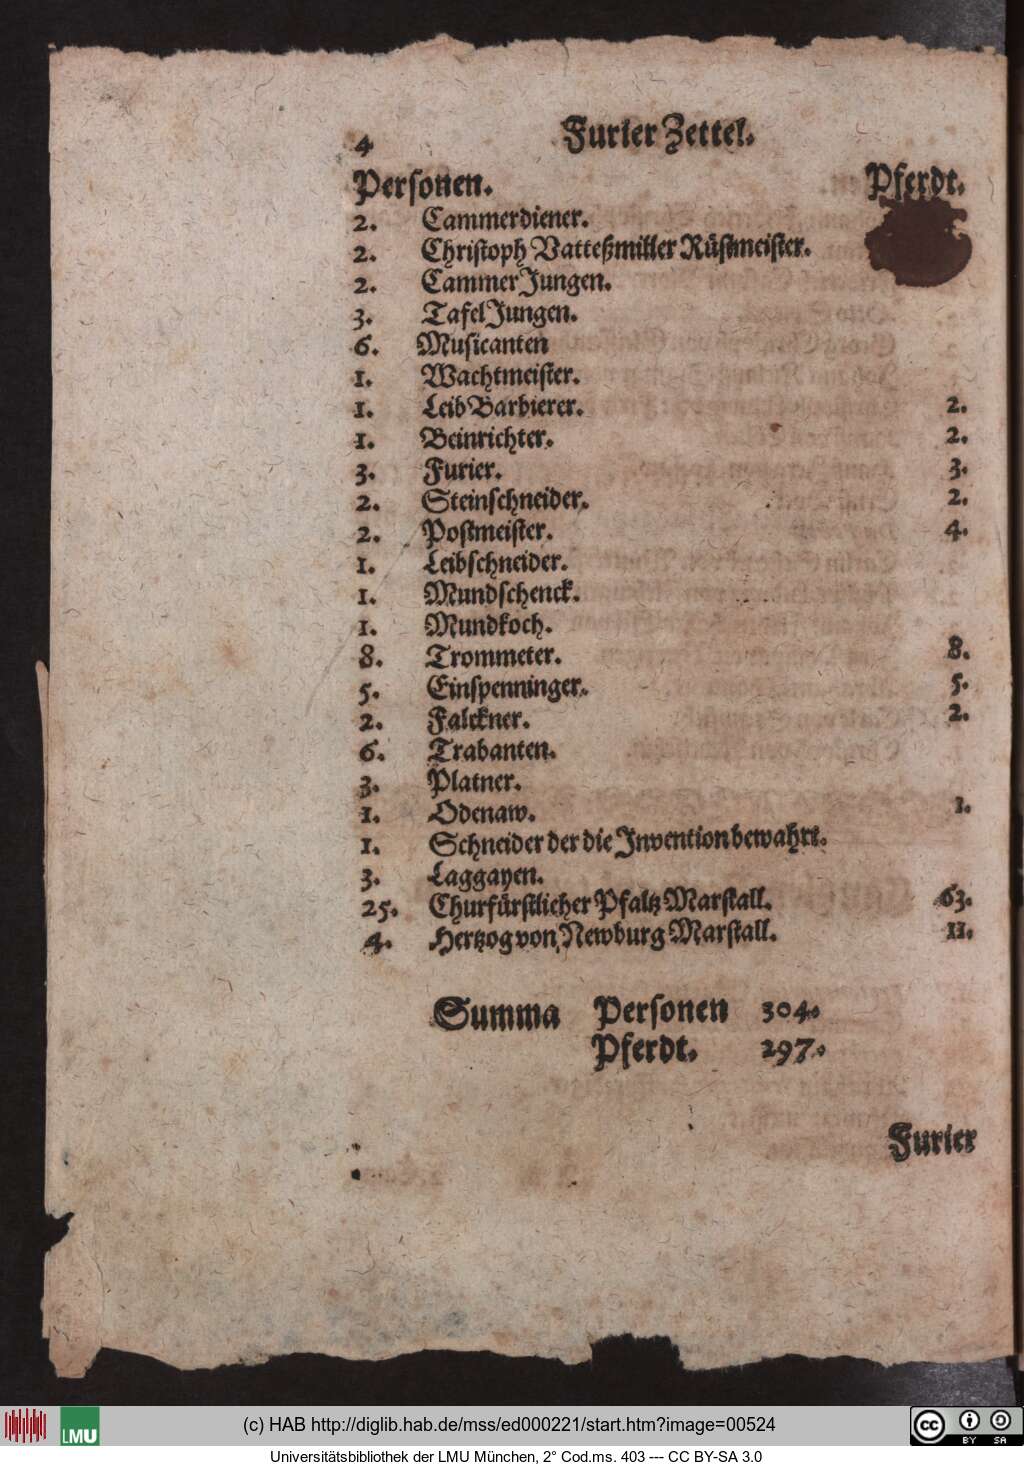 4 Furier Zettel.
Personen. Pferdt.
2. Cammerdiener.
2. Christoph Vatteßmiller Rüstmeister.
2. Cammer Jungen.
3. Tafel Jungen.
6. Musicanten
1. Wachtmeister.
1. Leib Barbierer. 2.
1. Beinrichter. 2.
3. Furier. 3.
2. Steinschneider. 2.
2. Postmeister. 4.
1. Leibschneider.
1. Mundschenck.
1. Mundkoch.
8. Trommeter. 8.
5. Einspenninger. 5.
2. Falckner. 2.
6. Trabanten.
3. Platner.
1. Odenaw. 1.
1. Schneider der die Invention bewahrt.
3. Laggayen.
25. Churfürstlicher Pfaltz Marstall. 63.
4. Hertzog von Newburg Marstall. 11.
Summa Personen 304.
Pferdt. 297.
Furier
LMU
(c) HAB http://diglib.hab.de/mss/ed000221/start.htm?image=00524
cc BY SA
Universitätsbibliothek der LMU München, 2° Cod.ms. 403 --- CC BY-SA 3.0